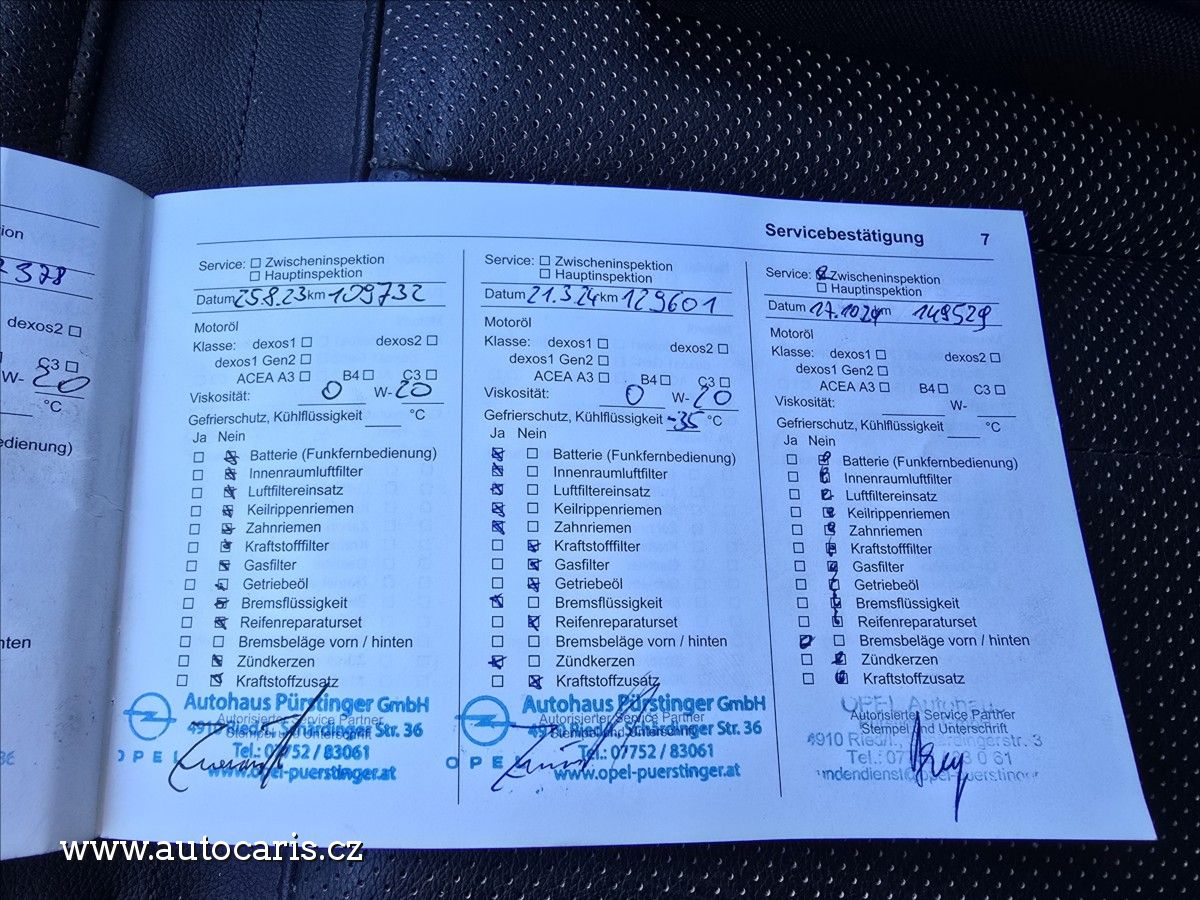 ion
378
dexos2
C3
W- 20
°C
edienung)
nten
Servicebestätigung 7
Service: Zwischeninspektion
Hauptinspektion
Datum 25.8.23 km 109732
Motoröl
Klasse: dexos1 dexos2
dexos1 Gen2
ACEA A3 B4 C3
Viskosität: 0 W- 20
Gefrierschutz, Kühlflüssigkeit °C
Ja Nein
Batterie (Funkfernbedienung)
Innenraumluftfilter
Luftfiltereinsatz
Keilrippenriemen
Zahnriemen
Kraftstofffilter
Gasfilter
Getriebeöl
Bremsflüssigkeit
Reifenreparaturset
Bremsbeläge vorn / hinten
Zündkerzen
Kraftstoffzusatz
Autohaus Pürstinger GmbH
Autorisierter Service Partner
4910 Ried, Schärdinger Str. 36
Stempel und Unterschrift
Tel.: 07752 / 83061
OPEL
www.opel-puerstinger.at
Service: Zwischeninspektion
Hauptinspektion
Datum 21.3.24 km 129601
Motoröl
Klasse: dexos1 dexos2
dexos1 Gen2
ACEA A3 B4 C3
Viskosität: 0 W- 20
Gefrierschutz, Kühlflüssigkeit -35 °C
Ja Nein
Batterie (Funkfernbedienung)
Innenraumluftfilter
Luftfiltereinsatz
Keilrippenriemen
Zahnriemen
Kraftstofffilter
Gasfilter
Getriebeöl
Bremsflüssigkeit
Reifenreparaturset
Bremsbeläge vorn / hinten
Zündkerzen
Kraftstoffzusatz
Autohaus Pürstinger GmbH
Autorisierter Service Partner
4910 Ried, Schärdinger Str. 36
Stempel und Unterschrift
Tel.: 07752 / 83061
OPEL
www.opel-puerstinger.at
Service: Zwischeninspektion
Hauptinspektion
Datum 17.10.24 km 149529
Motoröl
Klasse: dexos1 dexos2
dexos1 Gen2
ACEA A3 B4 C3
Viskosität: W-
Gefrierschutz, Kühlflüssigkeit °C
Ja Nein
Batterie (Funkfernbedienung)
Innenraumluftfilter
Luftfiltereinsatz
Keilrippenriemen
Zahnriemen
Kraftstofffilter
Gasfilter
Getriebeöl
Bremsflüssigkeit
Reifenreparaturset
Bremsbeläge vorn / hinten
Zündkerzen
Kraftstoffzusatz
OPEL Autohaus
Autorisierter Service Partner
Stempel und Unterschrift
4910 Ried
Tel.:
www.autocaris.cz